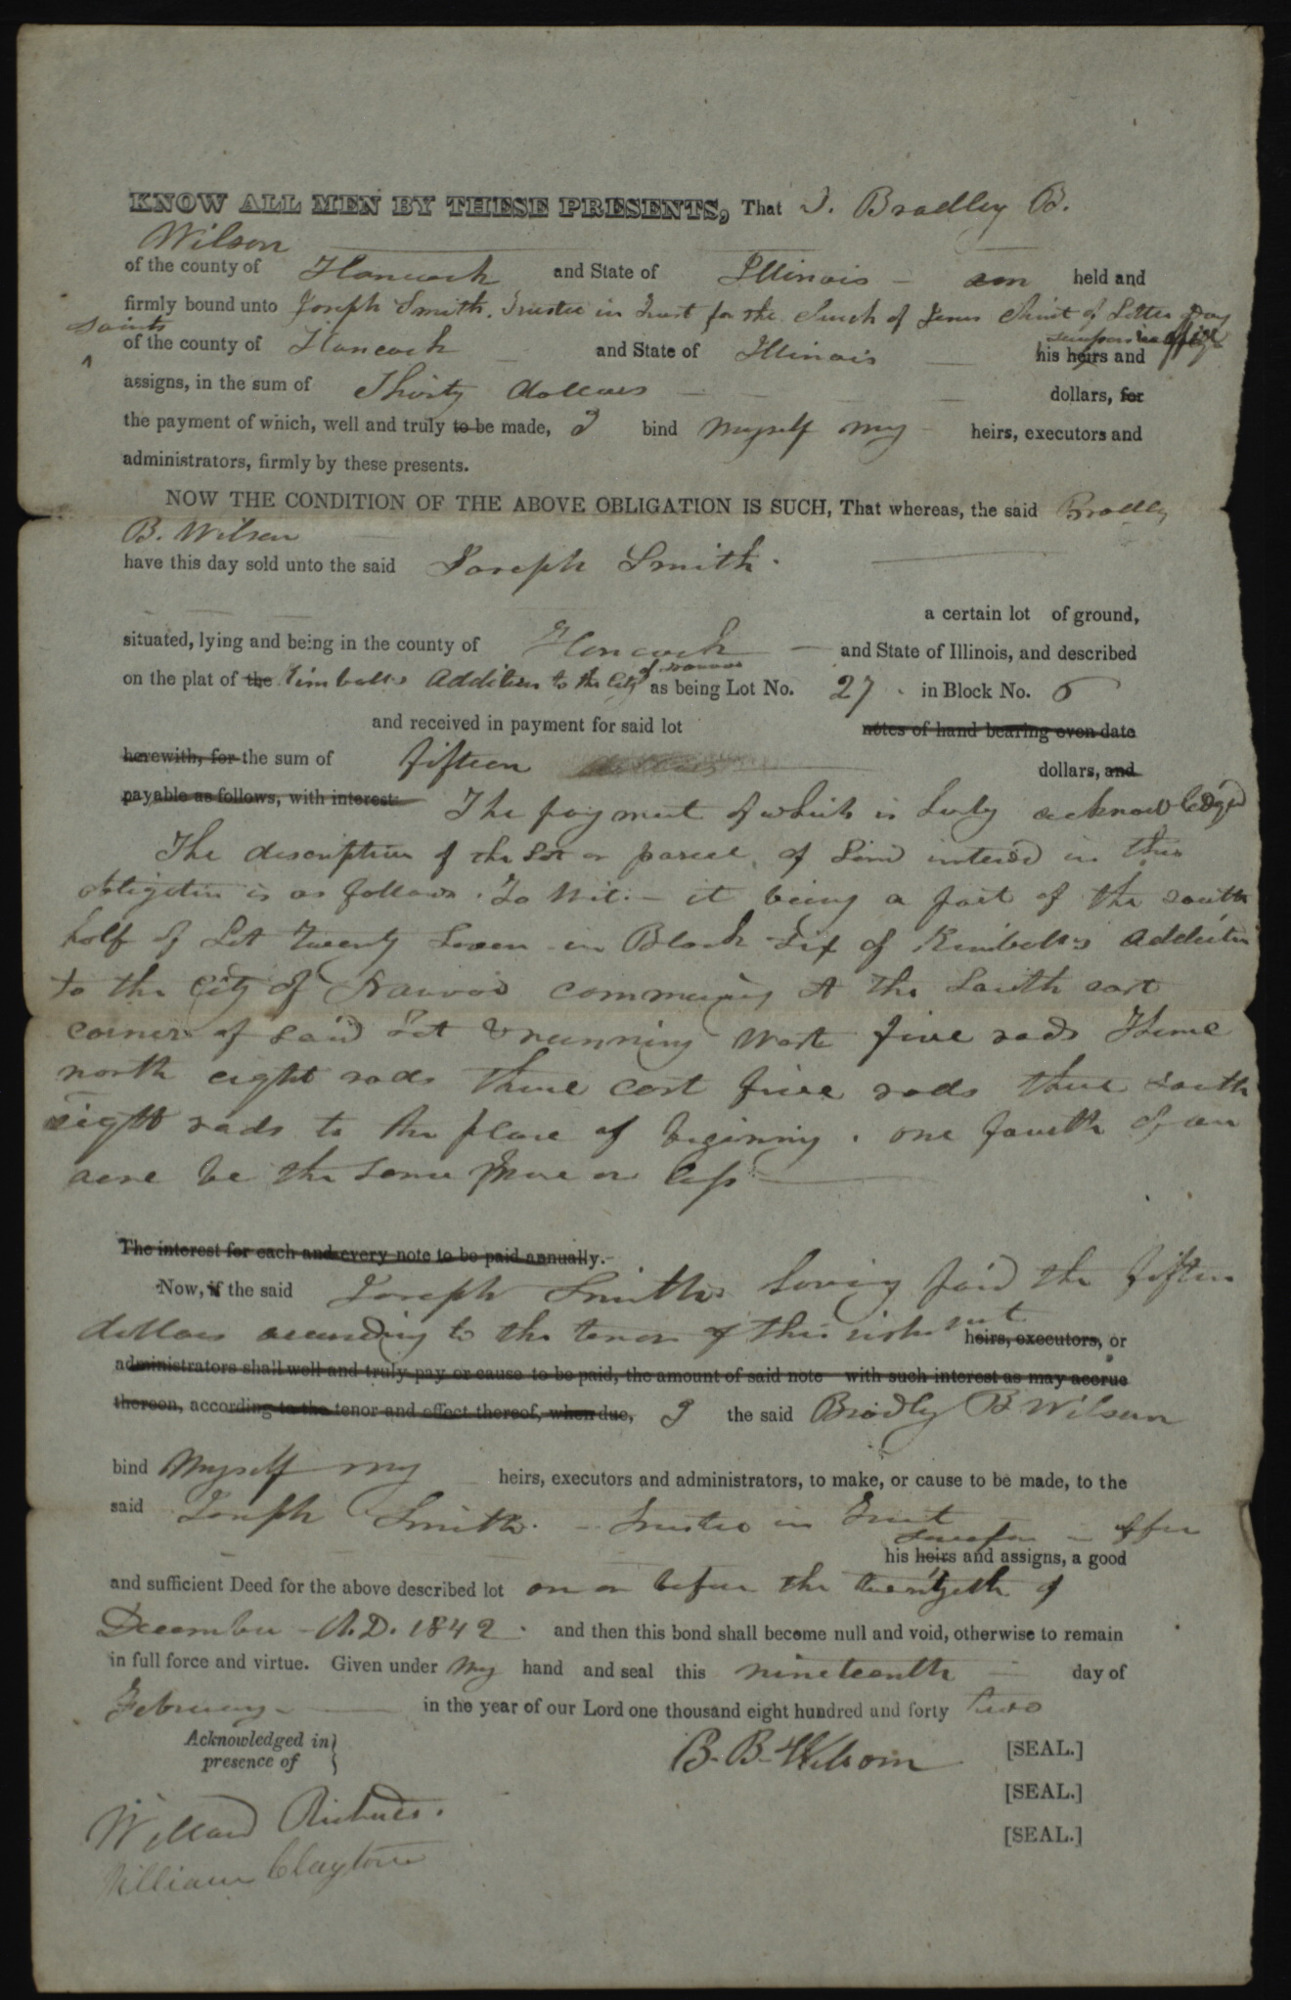 KNOW ALL MEN BY THESE PRESENTS, That I. Bradley B.
Wilson
of the county of Hancock and State of Illinois – am held and
firmly bound unto Joseph Smith. Trustee in Trust for the Church of Jesus Christ of Latter Day
saints
of the county of Hancock and State of Illinois — his heirs and
successors in office
assigns, in the sum of Thirty dollars — dollars, for
the payment of which, well and truly to be made, I bind myself my heirs, executors and
administrators, firmly by these presents.
NOW THE CONDITION OF THE ABOVE OBLIGATION IS SUCH, That whereas, the said Bradley
B. Wilson
have this day sold unto the said Joseph Smith.
a certain lot of ground,
situated, lying and being in the county of Hancock — and State of Illinois, and described
on the plat of the Kimballs Addition to the City of Nauvoo as being Lot No. 27. in Block No. 6
and received in payment for said lot notes of hand bearing even date
herewith, for the sum of fifteen dollars, and
payable as follows, with interest: The payment of which is duly acknowledged
The description of the Lot or parcel of Land intend in this
obligation is as follows. To Wit. – it being a part of the south
half of Lot Twenty Seven in Block Six of Kimball's addition
to the City of Nauvoo commencing at the South east
corner of said Lot & running West five rods Thence
north eight rods thence east five rods thence South
eight rods to the place of beginning. one fourth of an
acre be the same more or less —
The interest for each and every note to be paid annually.
Now, if the said Joseph Smith having paid the fifteen
dollars according to the tenor of this heirs, executors, or
administrators shall well and truly pay or cause to be paid, the amount of said note with such interest as may accrue
thereon, according to the tenor and effect thereof, when due, I the said Bradly B Wilson
bind Myself my heirs, executors and administrators, to make, or cause to be made, to the
said Joseph Smith. – Trustee in Trust
his heirs and assigns, a good
and sufficient Deed for the above described lot on or before the twentyeth of
December – A.D. 1842. and then this bond shall become null and void, otherwise to remain
in full force and virtue. Given under my hand and seal this nineteenth — day of
February — in the year of our Lord one thousand eight hundred and forty two
Acknowledged in }
presence of }
B. B. Wilson [SEAL.]
[SEAL.]
[SEAL.]
Willard Richards.
William Clayton